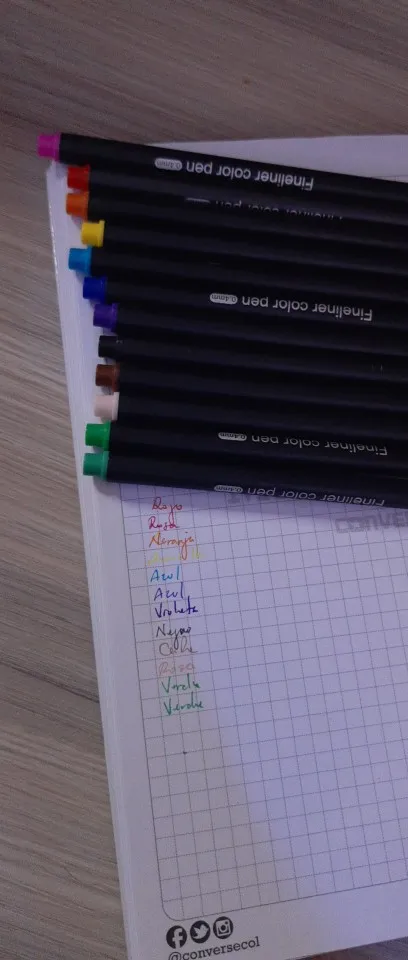 Fineliner color pen 0.4mm
Fineliner color pen 0.4mm
Fineliner color pen 0.4mm
Fineliner color pen 0.4mm
CONVERS
Rojo
Rosa
Naranja
Azul
Azul
Violeta
Negro
Cafe
Rosa
Verde
Verde
@conversecol